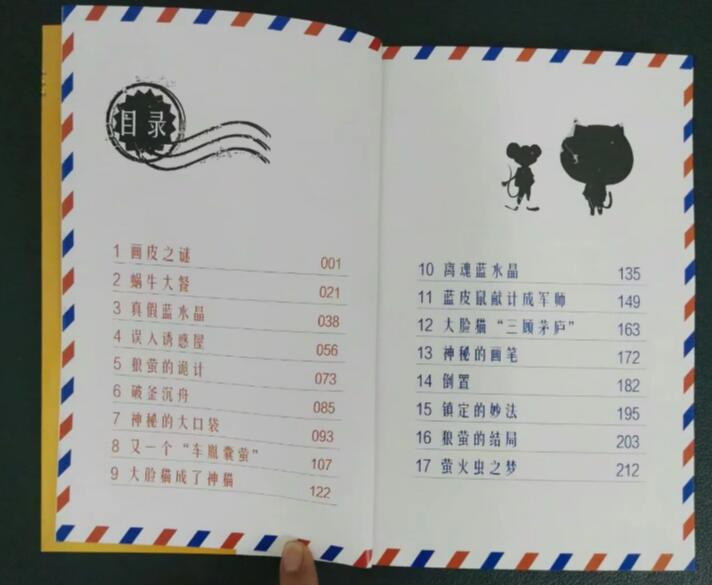 目录
1 画皮之谜 001
2 蜗牛大餐 021
3 真假蓝水晶 038
4 误入诱惑屋 056
5 狼萤的诡计 073
6 破釜沉舟 085
7 神秘的大口袋 093
8 又一个“车胤囊萤” 107
9 大脸猫成了神猫 122
10 离魂蓝水晶 135
11 蓝皮鼠献计成军师 149
12 大脸猫“三顾茅庐” 163
13 神秘的画笔 172
14 倒置 182
15 镇定的妙法 195
16 狼萤的结局 203
17 萤火虫之梦 212